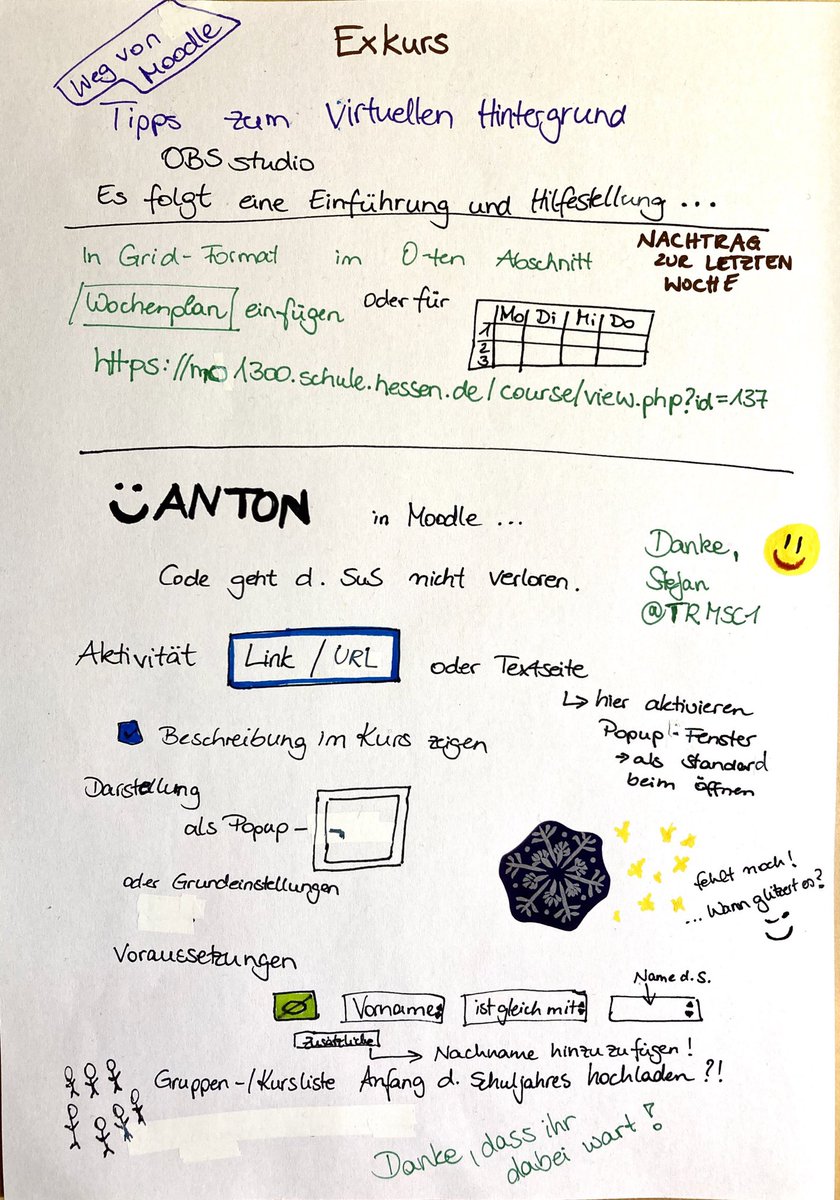 Weg von
Moodle
Exkurs
Tipps zum Virtuellen Hintergrund
OBS studio
Es folgt eine Einführung und Hilfestellung ...
In Grid-Format im 0-ten Abschnitt
NACHTRAG
ZUR LETZTEN
WOCHE
Wochenplan einfügen oder für
Mo Di Mi Do
1
2
3
https://mo1300.schule.hessen.de/course/view.php?id=137
ANTON in Moodle ...
Danke,
Stefan
@TRMSC1
Code geht d. SuS nicht verloren.
Aktivität Link / URL oder Textseite
↳ hier aktivieren
Popup-Fenster
→ als Standard
beim öffnen
Beschreibung im Kurs zeigen
Darstellung
als Popup –
oder Grundeinstellungen
fehlt noch!
... Wann glitzert es?
Voraussetzungen
Name d. S.
Vorname ist gleich mit
Zusätzliche
Nachname hinzuzufügen!
Gruppen-/Kursliste Anfang d. Schuljahres hochladen?!
Danke, dass ihr
dabei wart!